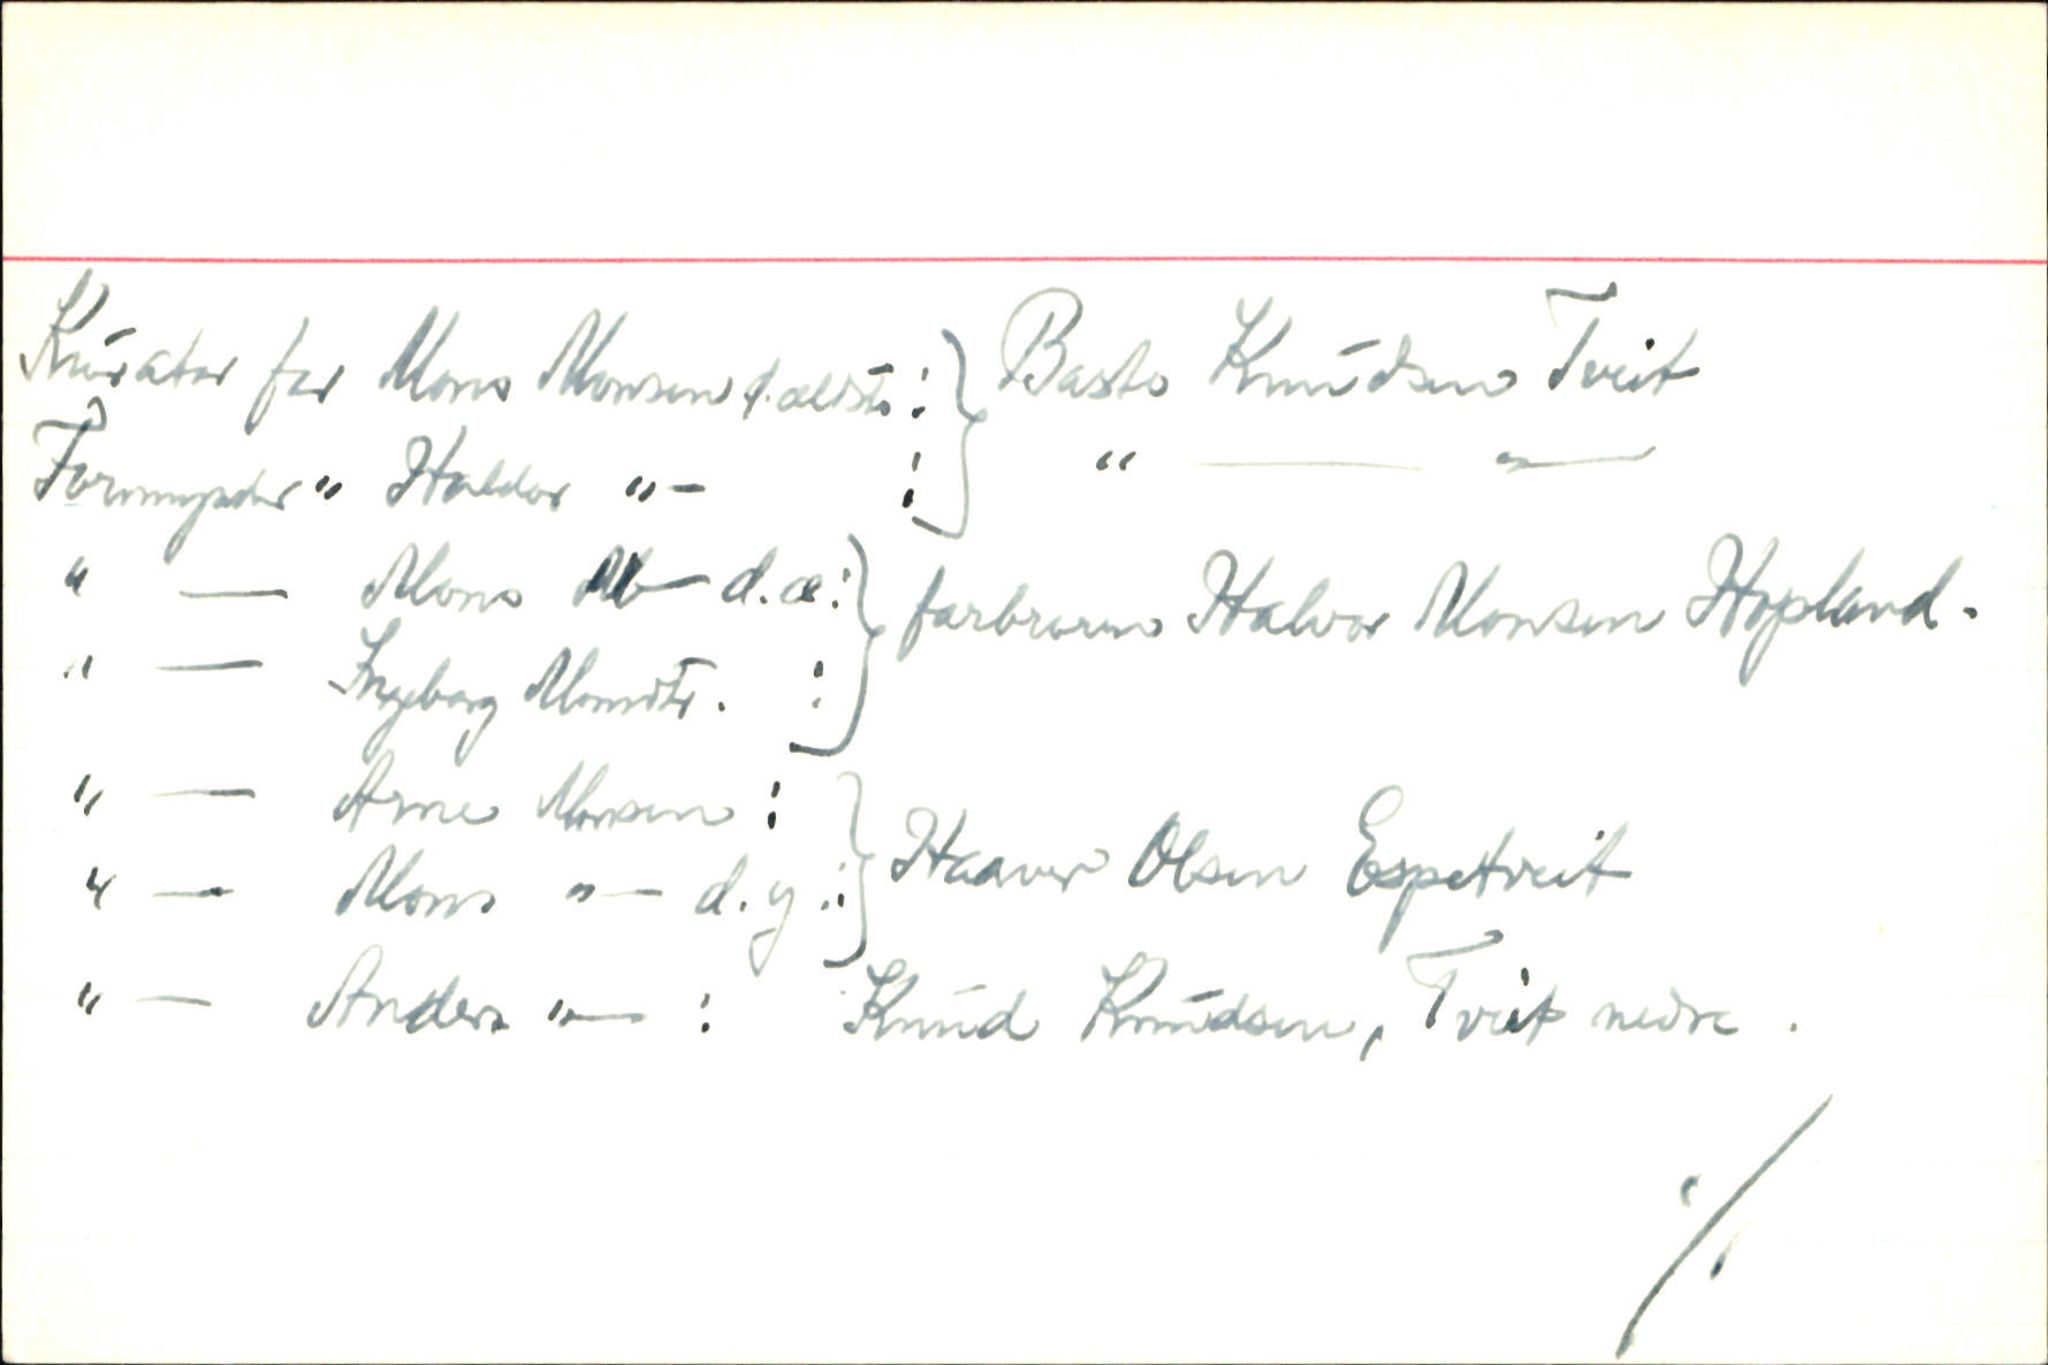 Kurator for Mons Monsen d. ældste : } Baste Knudsen Tveit
Formynder " Haldor " — : } " — " —
" — Mons — d. æ : } farbroren Halvor Monsen Hopland.
" — Ingeborg Monsdtr. : }
" — Arne Monsen : } Haaver Olsen Espetveit
" — Mons " — d. y. : }
" — Anders " — : Knud Knudsen, Tveit nedre .
./.